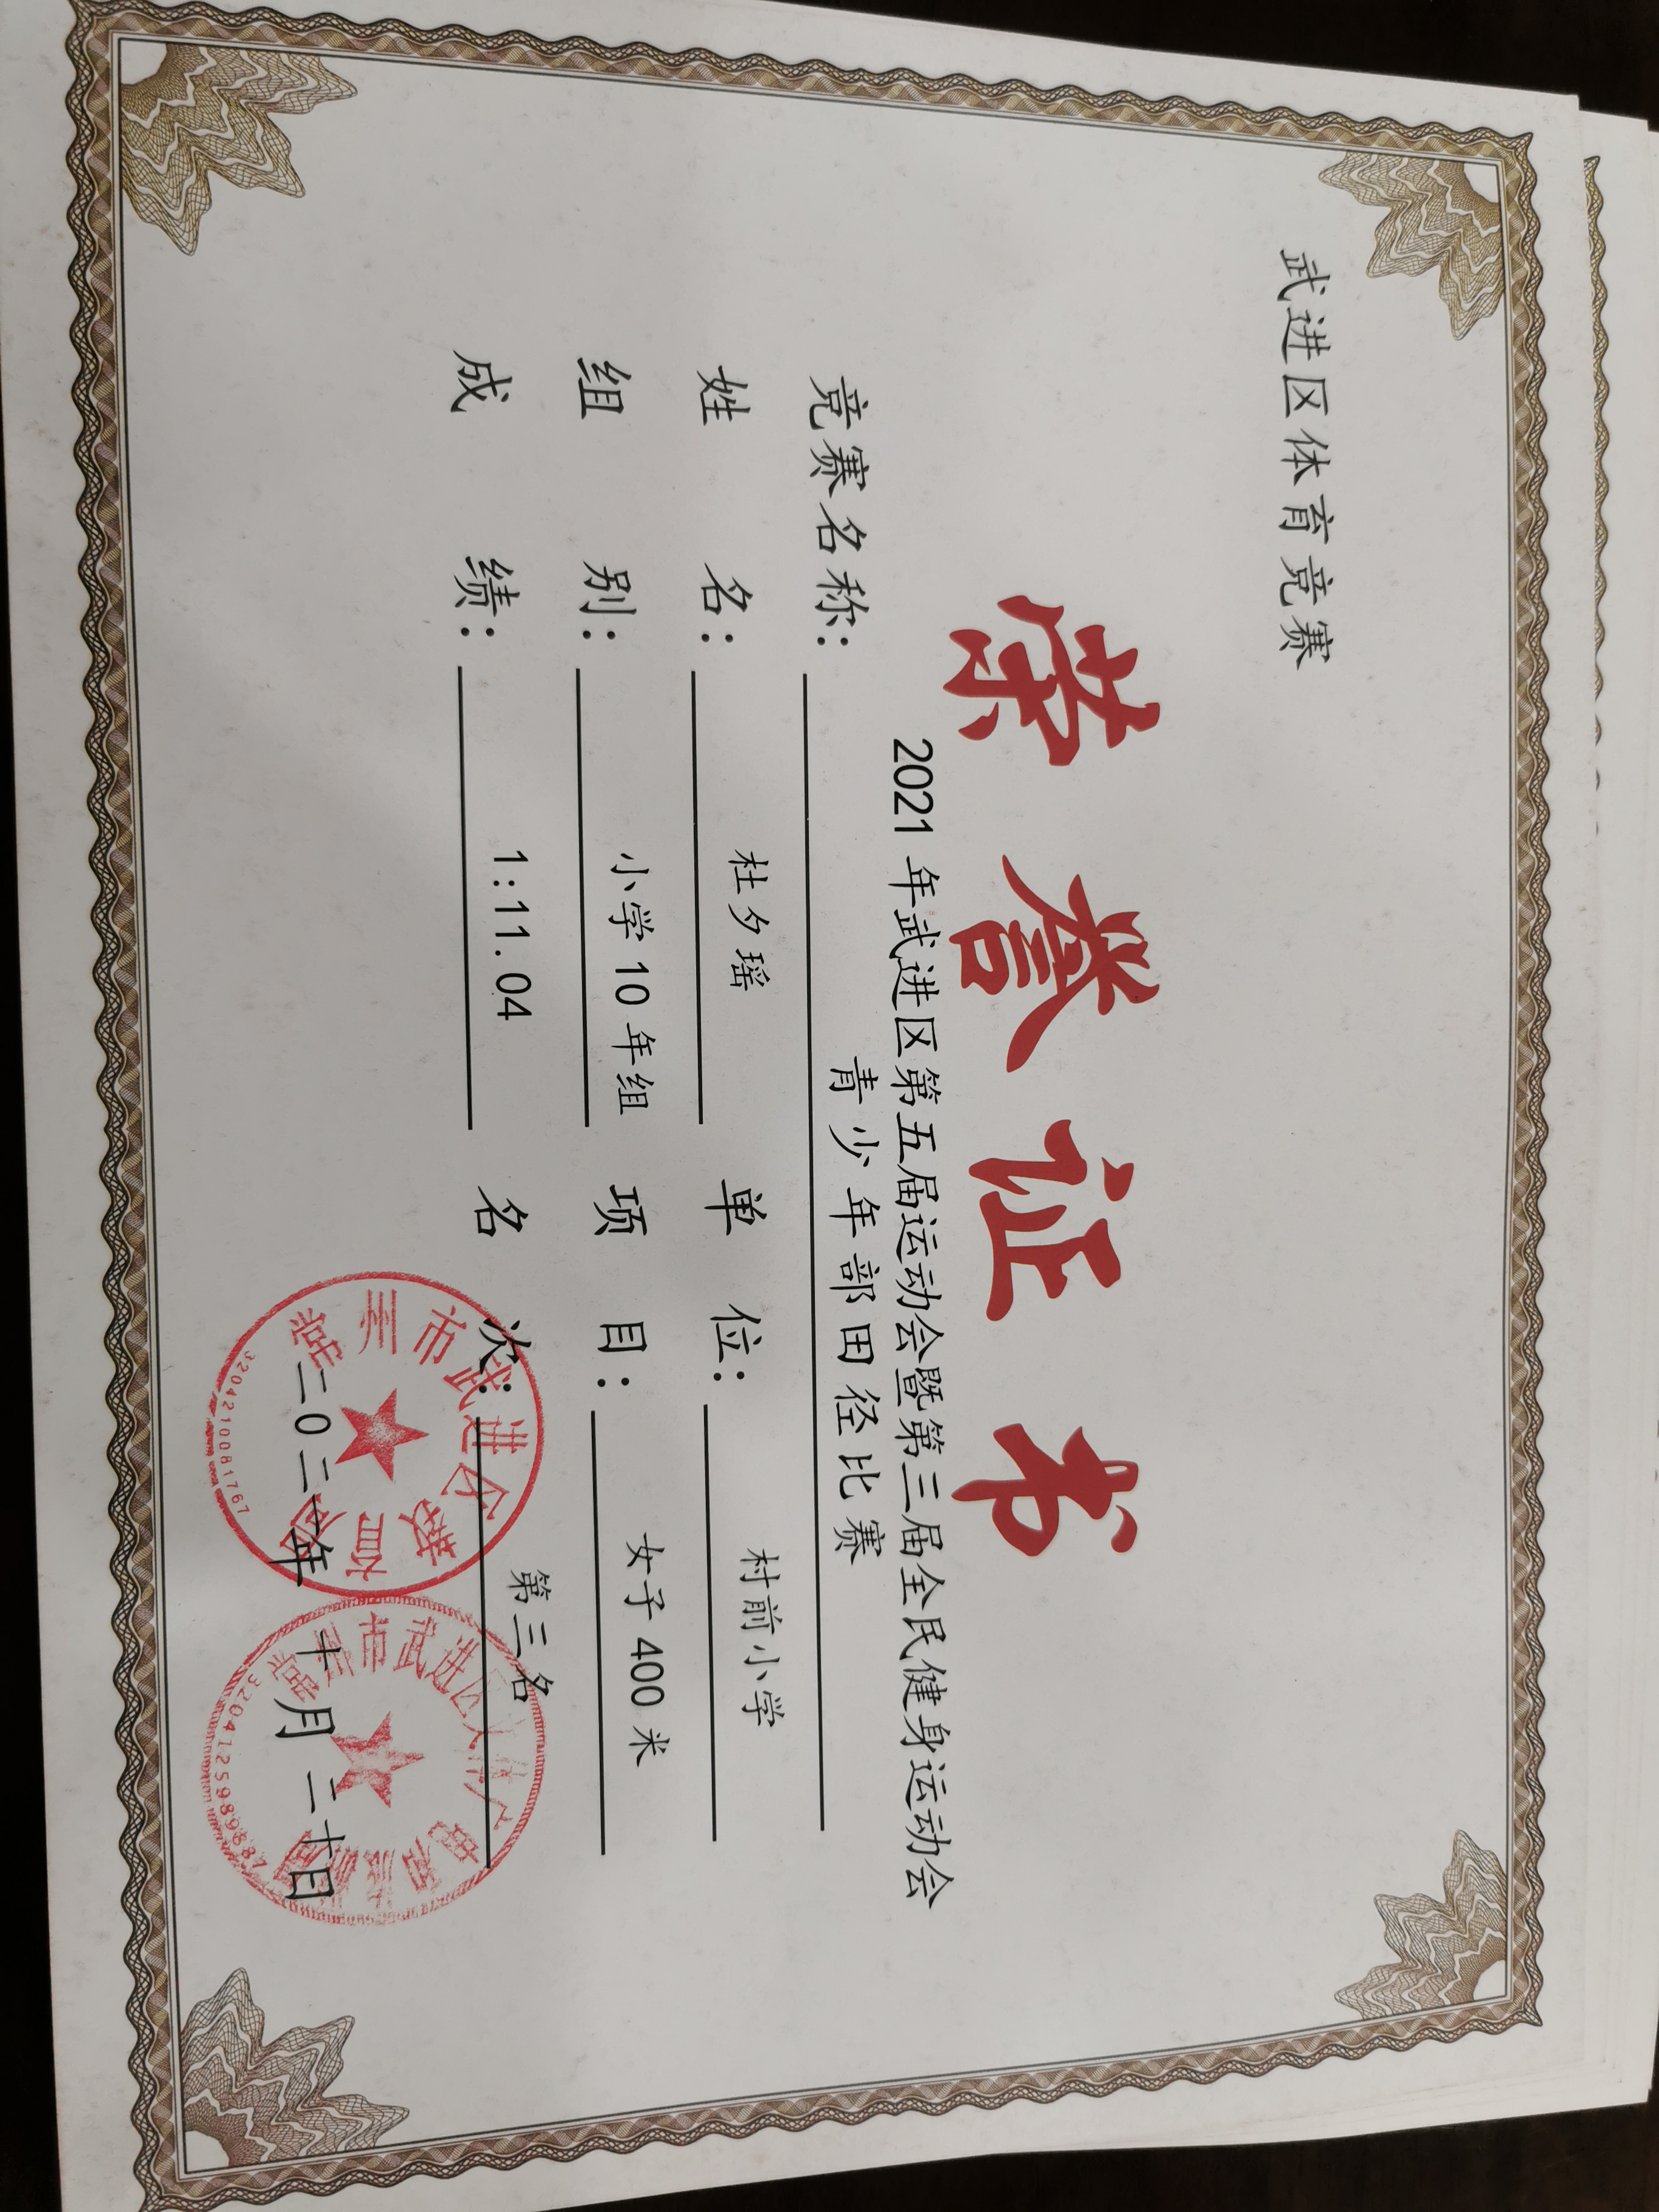 武进区体育竞赛
荣誉证书
2021年武进区第五届运动会暨第三届全民健身运动会
竞赛名称：青少年部田径比赛
姓名：杜夕瑶 单位：村前小学
组别：小学10年组 项目：女子400米
成绩：1:11.04 名次：第三名
二〇二一年十月二十日
常州市武进区教育局
3204210081767
常州市武进区
3204125989887